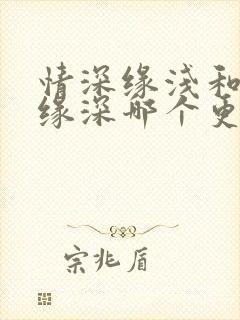 情深缘浅和
缘深哪个更
宗兆盾